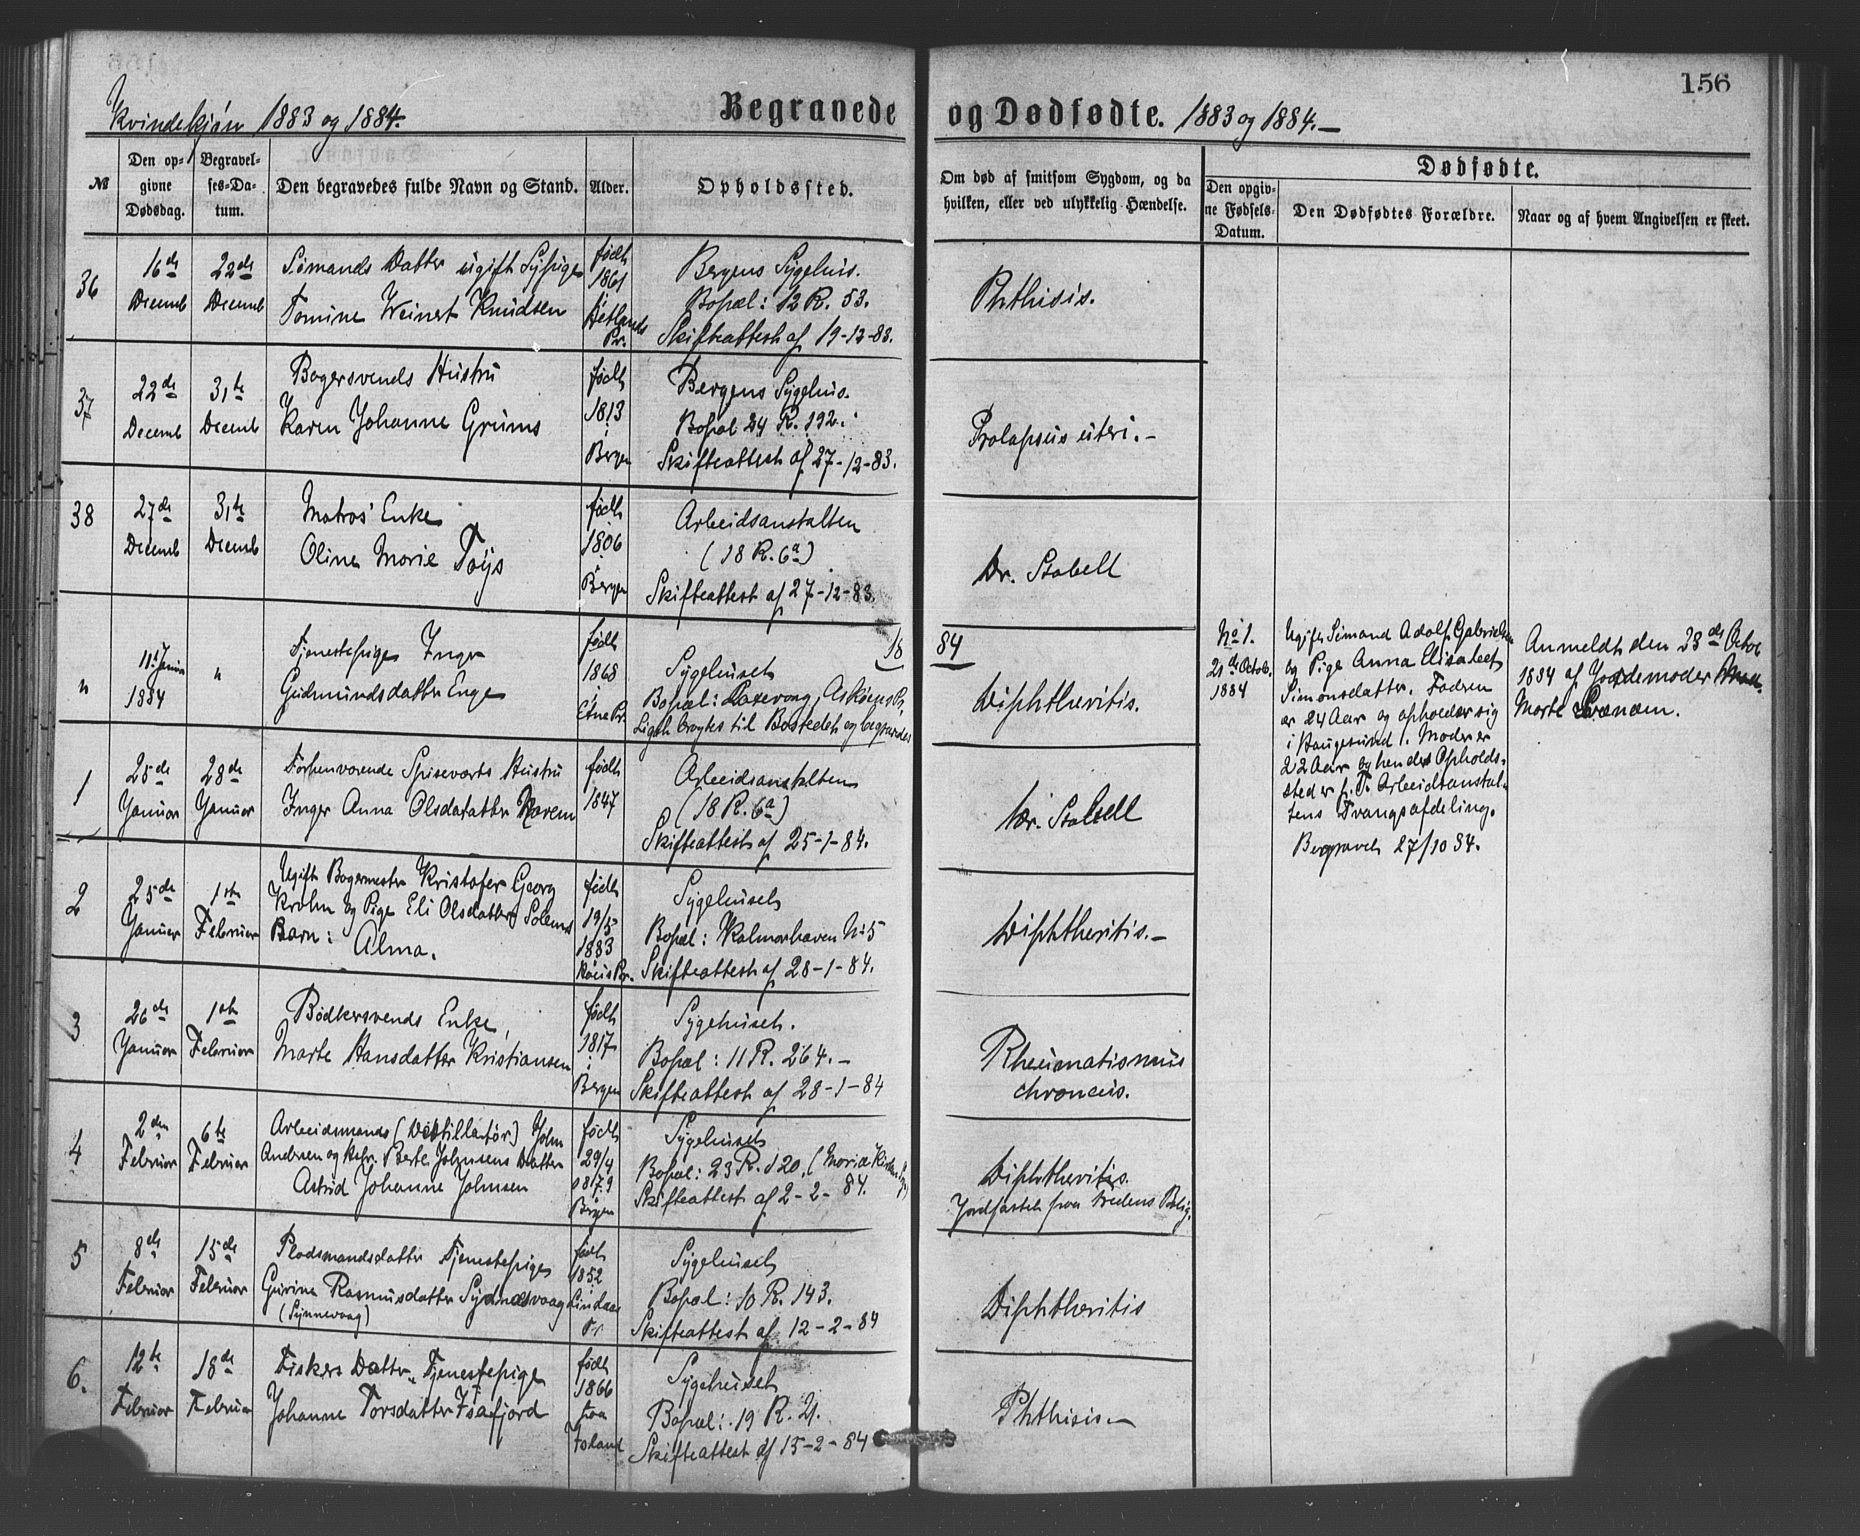 156
Kvindekjøn 1883 og 1884.
Begravede og Dødfødte. 1883 og 1884.—
№
Den opgivne Dødsdag.
Begravelses-Datum.
Den begravedes fulde Navn og Stand.
Alder.
Opholdssted.
Om død af smitsom Sygdom, og da
hvilken, eller ved ulykkelig Hændelse.
Dødfødte.
Den opgivne Fødsels-Datum.
Den Dødfødtes Forældre.
Naar og af hvem Angivelsen er skeet.
36
16de Decemb
22de Decemb
Sømands Datter ugift Sypige
Tomine Weinert Knudsen
født 1861 i Hetlands Pr.
Bergens Sygehus.
Bopæl: 12 R. 53.
Skifteattest af 19-12-83.
Phthisis.
37
22de Decemb
31te Decemb
Bagersvends Hustru
Karen Johanne Grüms
født 1813 i Bergen
Bergens Sygehus.
Bopæl 24 R. 192.
Skifteattest af 27-12-83.
Prolapsus uteri.—
38
27de Decemb
31te Decemb
Matros' Enke
Oline Marie Töys
født 1806 i Bergen
Arbeidsanstalten
(18 R. 6a)
Skifteattest af 27-12-83.
Dr. Stabell
1884
"
11te Januar 1884
"
Tjenestepige Inger
Gudmundsdatter Enge
født 1868 i Etne Pr.
Sygehuset
Bopæl: Laxevaag, Askøens Pr.
Liget bragtes til Bostedet og begravedes
Diphtheritis.
No 1.
21de Octob. 1884
Ugift Sømand Adolf Gabrielsen
og Pige Anna Elisabeth
Simonsdatter. Fadren
er 24 Aar og opholder sig
i Haugesund. Moder er
22 Aar og hendes Opholds-
sted er f. T. Arbeidsanstal-
tens Tvangsafdeling.
Begravet 27/10 84.
Anmeldt den 23de Octob
1884 af Jordemoder
Marte Svanøm.
1
25de Januar
28de Januar
Forhenværende Spiseverts Hustru
Inger Anna Olsdatter Navem
født 1847
Arbeidsanstalten
(18 R. 6a)
Skifteattest af 25-1-84.
Dr. Stabell
2
25de Januar
1ste Februar
Ugift Bagermester Kristofer Georg
Krohn og Pige Eli Olsdatter Solems
Barn: Alma.
født 19/5 1883
Sygehuset
Bopæl: Kalmarhaven No 5
Skifteattest af 28-1-84.
Diphtheritis.—
3
26de Januar
1ste Februar
Bødkersvends Enke,
Marte Hansdatter Kristiansen
født 1817 i Bergen
Sygehuset.
Bopæl: 11 R. 264.—
Skifteattest af 28-1-84
Rheumatismus
chronicus.
4
2den Februar
6te Februar
Arbeidsmands (Destillatør) John
Andersen og Berte Johnsens Datter
Astrid Johanne Johnsen
født 29/4 1879 Bergen
Sygehuset
Bopæl: 23 R. 120.
Skifteattest af 2-2-84.
Diphtheritis.
Jordfæstet fra Bolig.
5
8de Februar
15de Februar
Pladsmandsdatter Tjenestepige
Gurine Rasmusdatter Sydnæsvaag
(Synnevaag)
født 1852 Lindaas Pr
Sygehuset
Bopæl: 10 R. 143.
Skifteattest af 12-2-84
Diphtheritis
6.
12te Februar
18de Februar
Fiskers Datter, Tjenestepige
Johanne Torsdatter Isafjord
født 1866 paa Island
Sygehuset
Bopæl: 19 R. 21.
Skifteattest af 15-2-84
Phthisis.—